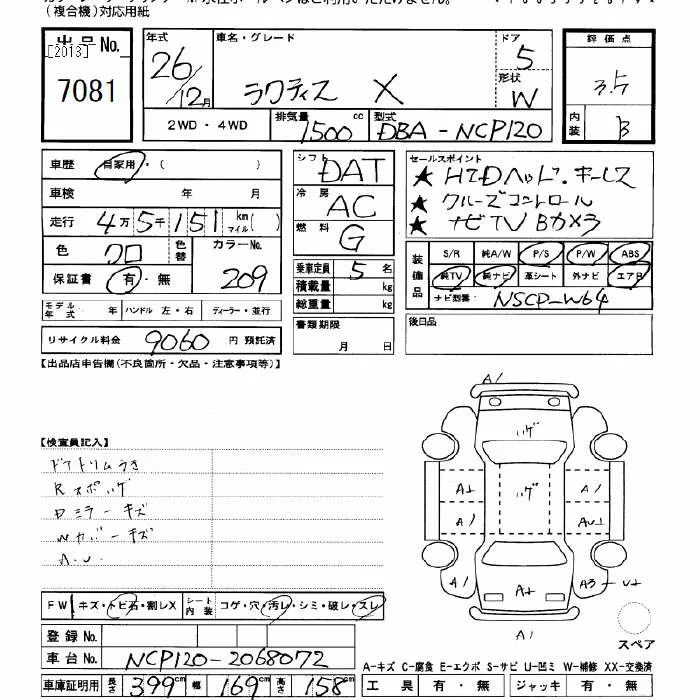 (複合機)対応用紙
出品No.
[2013]
7081
年式
26/12月
車名・グレード
ラクティス X
ドア
5
形状
W
評価点
3.5
内装
B
2WD・4WD
排気量
1500 cc
型式
DBA-NCP120
車歴
自家用・( )
車検 年 月
走行 4万5千151 km マイル( )
色 クロ
色替
カラーNo.
209
保証書 有・無
シフト
DAT
冷房
AC
燃料
G
乗車定員 5 名
積載量 kg
総重量 kg
セールスポイント
★ HIDヘッド・キーレス
★ クルーズコントロール
★ ナビTV Bカメラ
装備品
S/R 純A/W P/S P/W ABS
純TV 純ナビ 革シート 外ナビ エアB
ナビ型番 NSCP-W64
モデル年式 年 ハンドル 左・右 ディーラー・並行
書類期限
月 日
後日品
リサイクル料金 9060 円 預託済
【出品店申告欄(不良箇所・欠品・注意事項等)】
【検査員記入】
ドアトリムうき
Rスポハゲ
Dミラーキズ
Wカバーキズ
A.U.
A1
ハゲ
A1 ハゲ A1
A1 AU1
A1 A1 A3 U1
A1
FW キズ・トビ石・割レX
シート内装 コゲ・穴・汚レ・シミ・破レ・スレ
登録No.
車台No. NCP120-2068072
スペア
A-キズ C-腐食 E-エクボ S-サビ U-凹ミ W-補修 XX-交換済
車庫証明用 長さ 399cm 幅 169cm 高さ 158cm
工具 有・無 ジャッキ 有・無